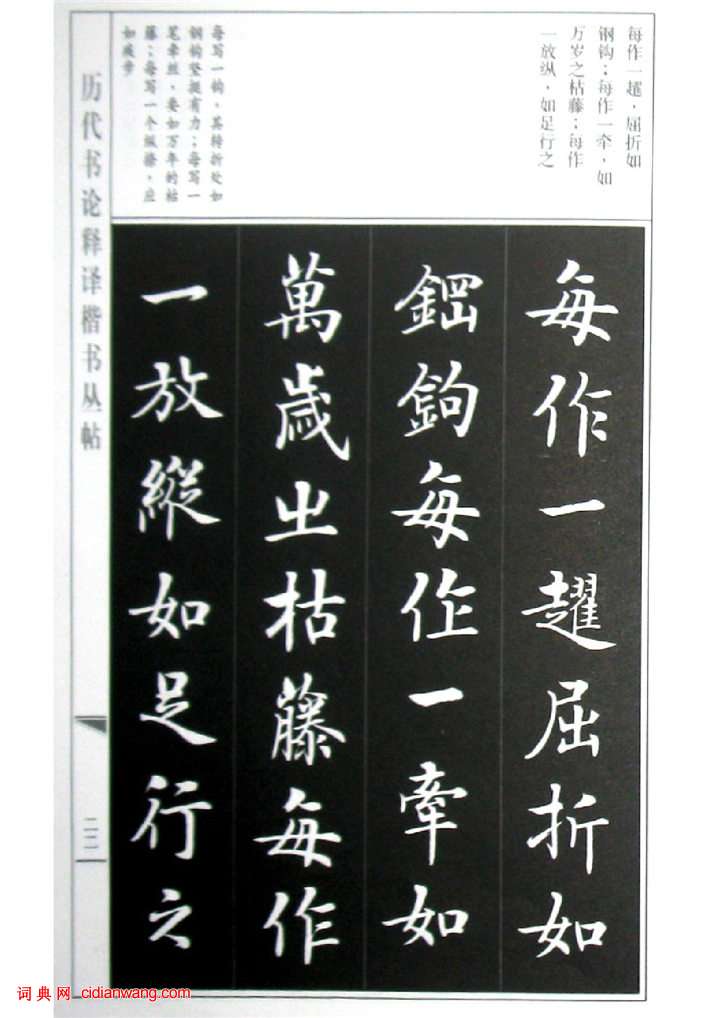 每作一趯，屈折如
钢钩；每作一牵，如
万岁之枯藤；每作
一放纵，如足行之
每写一钩，其转折处如
钢钩坚挺有力；每写一
笔牵丝，要如万年的枯
藤；每写一个纵捺，应
如疾步
每作一趯屈折如
鋼鉤每作一牽如
萬歲之枯藤每作
一放縱如足行之
历代书论释译楷书丛帖
二二
词典网 cidianwang.com